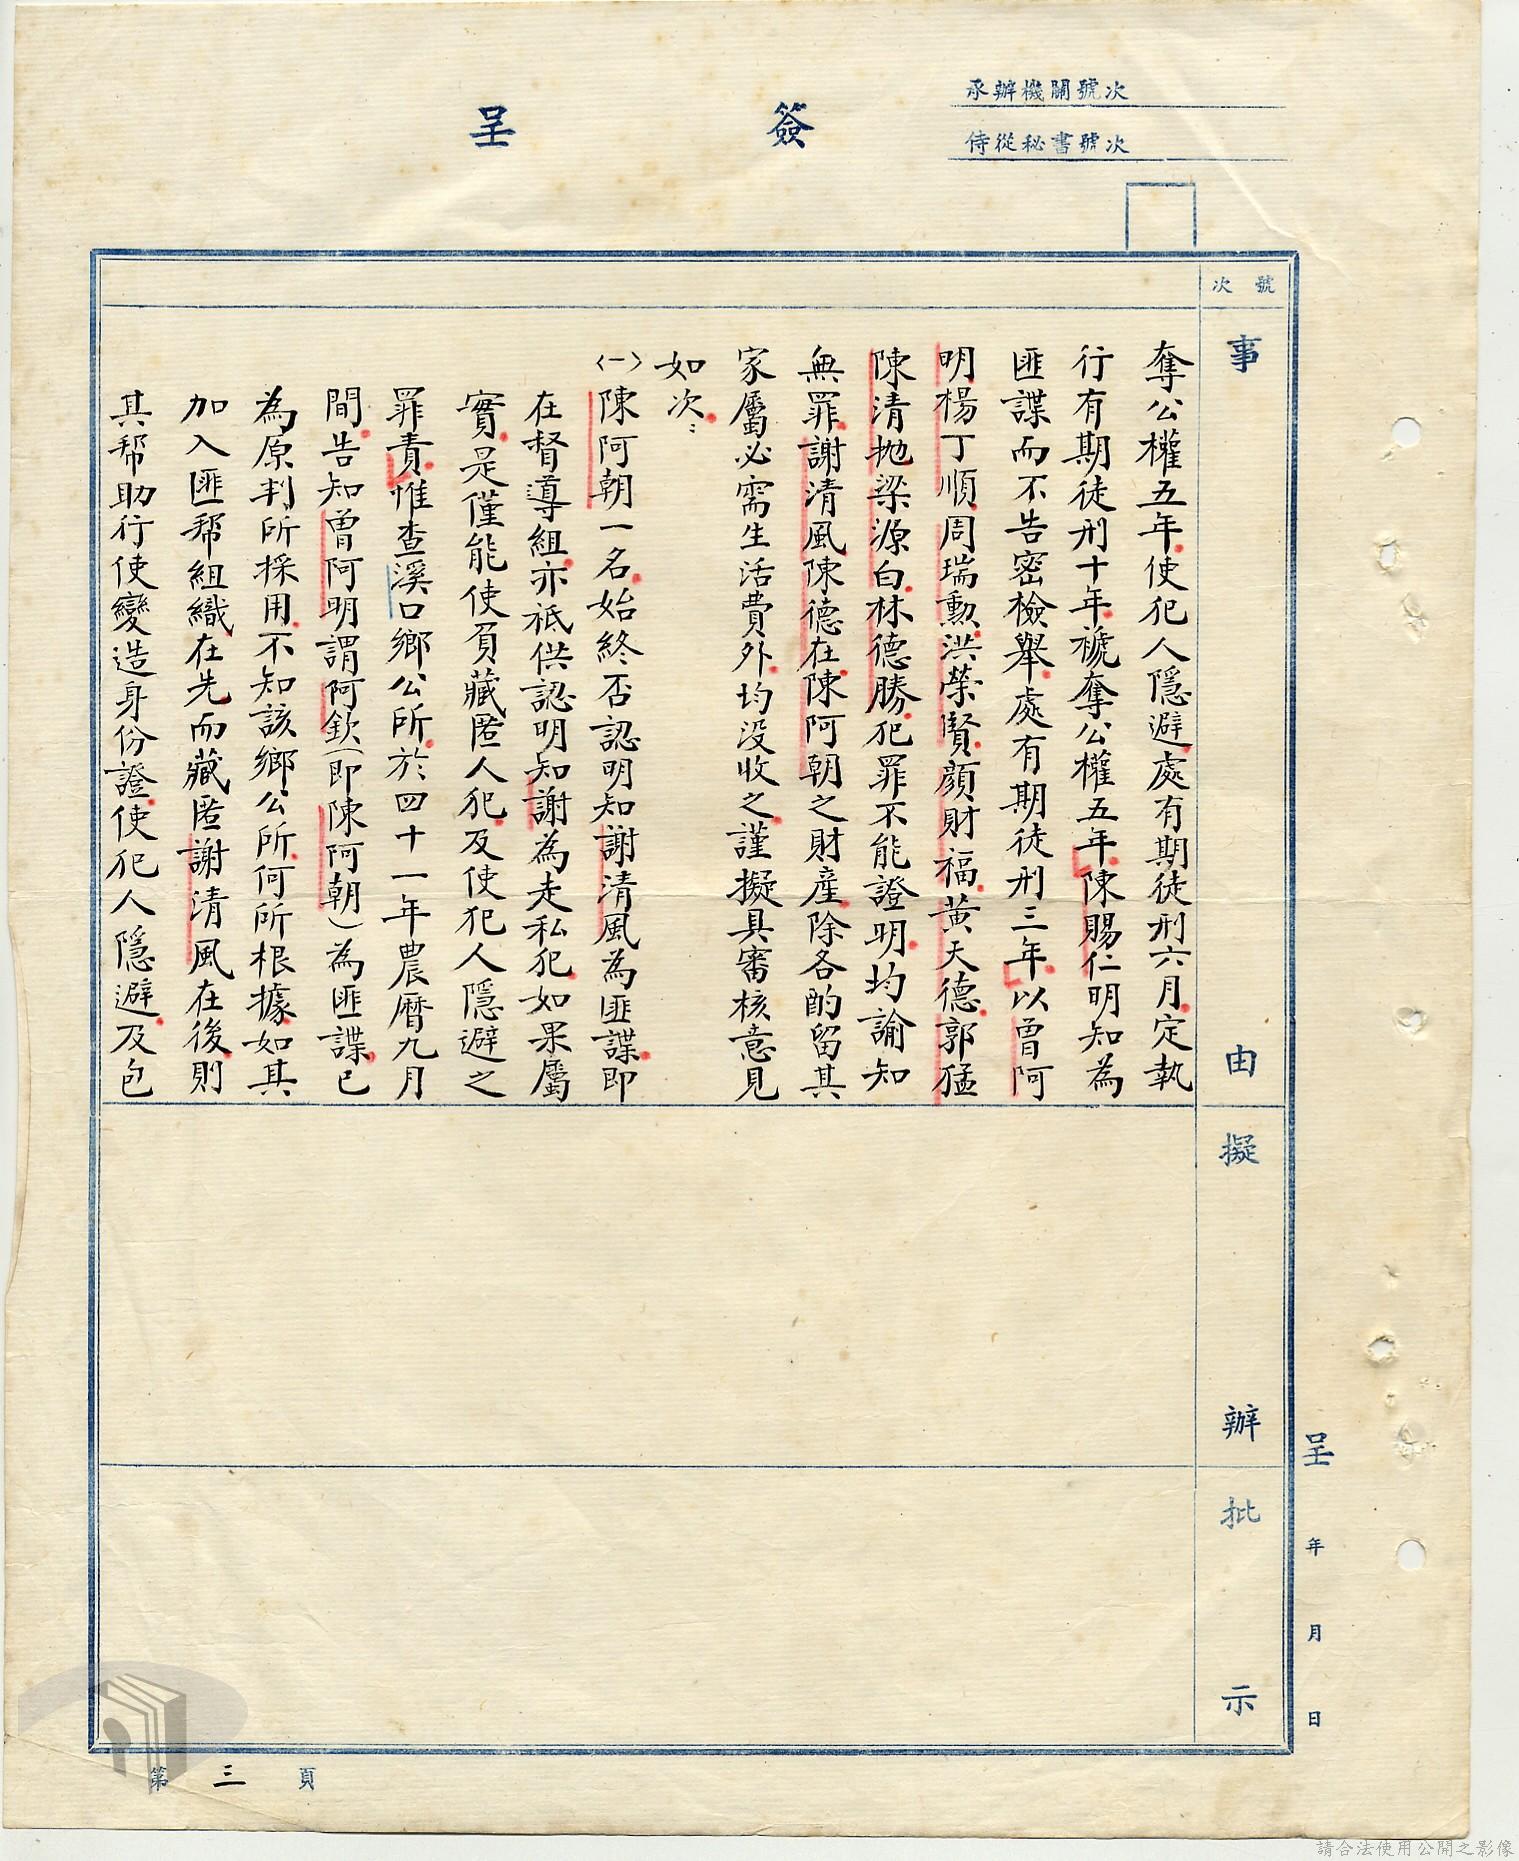 承辦機關號次
侍從秘書號次
簽呈
號次
事由
擬辦
批示
奪公權五年使犯人隱避處有期徒刑六月定執
行有期徒刑十年褫奪公權五年陳賜仁明知為
匪諜而不告密檢舉處有期徒刑三年以曾阿
明楊丁順周瑞勳洪榮賢顏財福黃天德郭猛
陳清拋梁源白林德勝犯罪不能證明均諭知
無罪謝清風陳德在陳阿朝之財產除各酌留其
家屬必需生活費外均沒收之謹擬具審核意見
如次：
〈一〉陳阿朝一名始終否認明知謝清風為匪諜即
在督導組亦祇供認明知謝為走私犯如果屬
實是僅能使負藏匿人犯及使犯人隱避之
罪責惟查溪口鄉公所於四十一年農曆九月
間告知曾阿明謂阿欽（即陳阿朝）為匪諜已
為原判所採用不知該鄉公所何所根據如其
加入匪幫組織在先而藏匿謝清風在後則
其幫助行使變造身份證使犯人隱避及包
呈 年 月 日
第三頁
請合法使用公開之影像